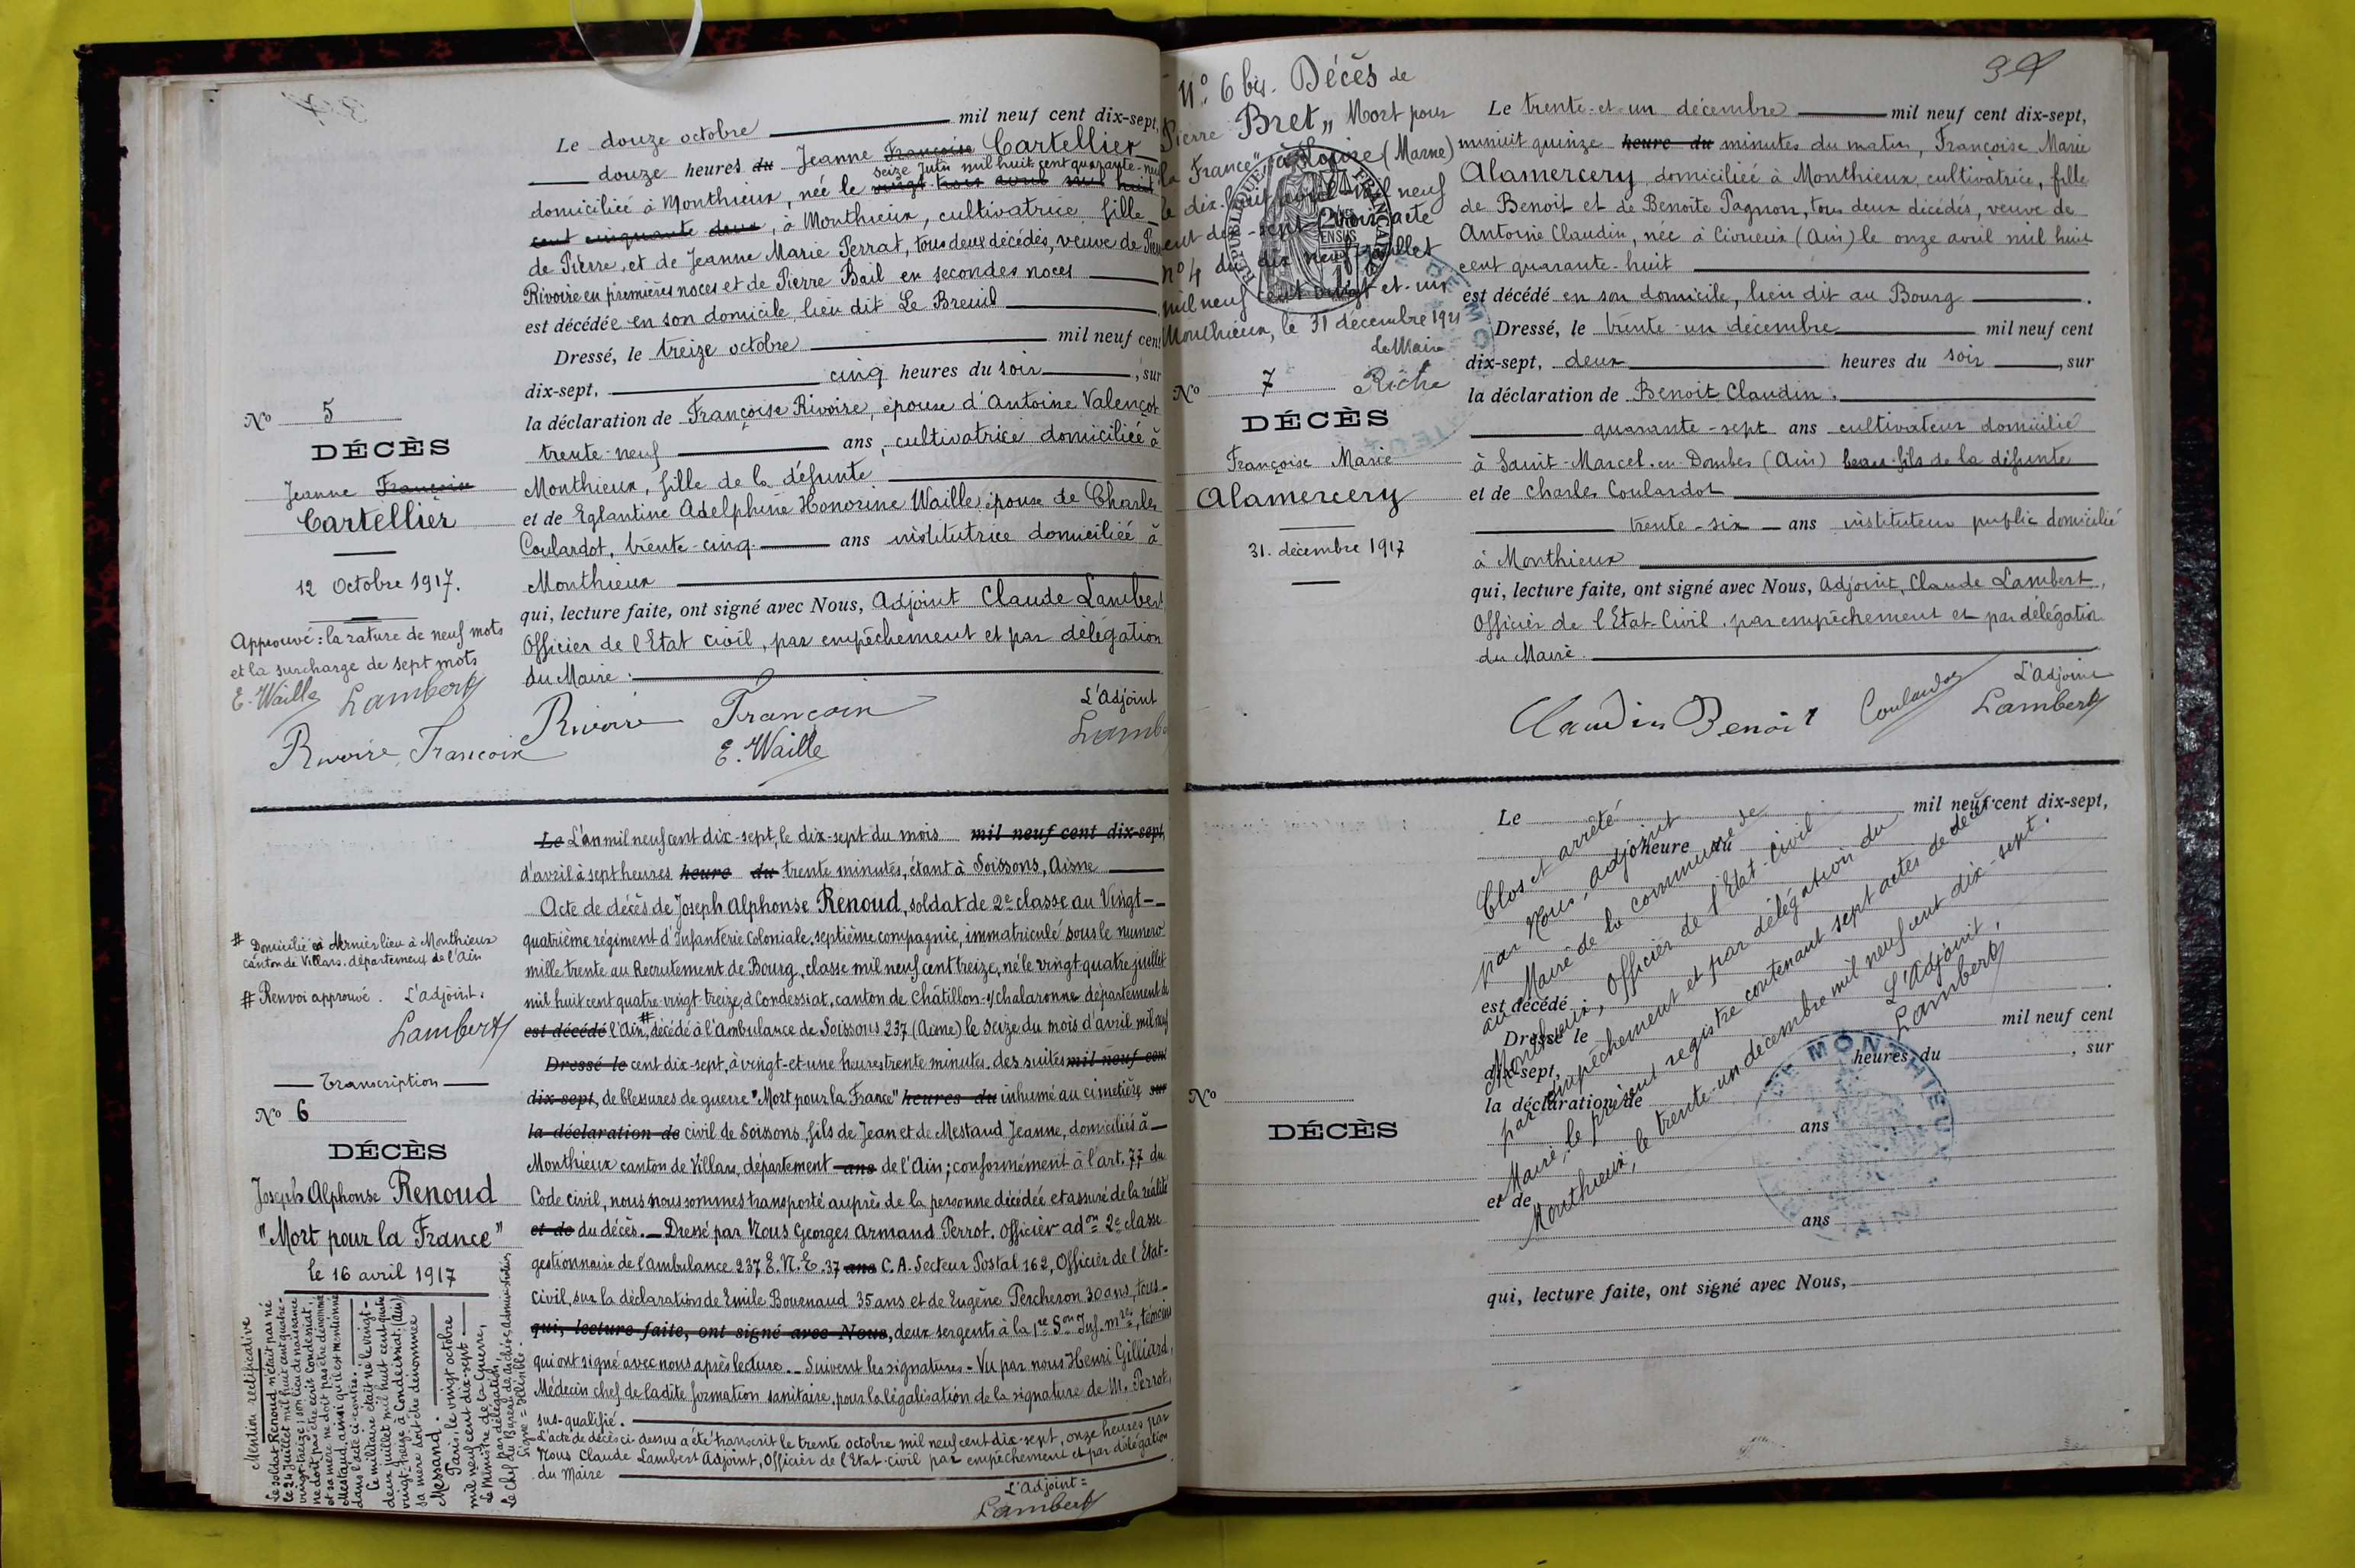 Le douze octobre mil neuf cent dix-sept,
douze heures du Jeanne Françoise Cartellier
seize Juin mil huit cent quarante-neuf
domiciliée à Monthieux, née le vingt trois avril mil huit
cent cinquante deux, à Monthieux, cultivatrice, fille
de Pierre, et de Jeanne Marie Perrat, tous deux décédés, veuve de Pierre
Rivoire en premières noces et de Pierre Bail en secondes noces
est décédée en son domicile, lieu dit Le Breuil
Dressé, le treize octobre mil neuf cent
dix-sept, cinq heures du soir, sur
la déclaration de Françoise Rivoire, épouse d'Antoine Valençot
trente-neuf ans, cultivatrice domiciliée à
Monthieux, fille de la défunte
et de Eglantine Adelphine Honorine Waille, épouse de Charles
Coulardot, trente-cinq ans institutrice domiciliée à
Monthieux
qui, lecture faite, ont signé avec Nous, Adjoint Claude Lambert
Officier de l'Etat civil, par empêchement et par délégation
du Maire.
Rivoire Françoise
E. Waille
L'Adjoint
Lambert
No 5
DÉCÈS
Jeanne Françoise
Cartellier
12 Octobre 1917.
Approuvé: la rature de neuf mots
et la surcharge de sept mots
E. Waille Lambert
Rivoire Françoise
Le L'an mil neuf cent dix-sept, le dix-sept du mois mil neuf cent dix-sept,
d'avril à sept heures heure du trente minutes, étant à Soissons, Aisne
Acte de décès de Joseph Alphonse Renoud, soldat de 2e classe au Vingt-
quatrième régiment d'Infanterie Coloniale, septième compagnie, immatriculé sous le numéro
mille trente au Recrutement de Bourg, classe mil neuf cent treize, né le vingt-quatre juillet
mil huit cent quatre-vingt-treize, à Condessiat, canton de Châtillon-s/Chalaronne département de
est décédé l'Ain,# décédé à l'Ambulance de Soissons 237 (Aisne) le seize du mois d'avril mil neuf
Dressé le cent dix-sept, à vingt-et-une heures trente minutes, des suites mil neuf cent
dix-sept, de blessures de guerre "Mort pour la France" heures du inhumé au cimetière sur
la déclaration de civil de Soissons, fils de Jean et de Mestaud Jeanne, domiciliés à
Monthieux canton de Villars, département ans de l'Ain; conformément à l'art. 77 du
Code civil, nous nous sommes transporté auprès de la personne décédée et assuré de la réalité
et de du décès. Dressé par Nous Georges Armand Perrot, Officier adon 2e classe
gestionnaire de l'ambulance 237 E.N.E. 37 ans C.A. Secteur Postal 162, Officier de l'Etat-
civil, sur la déclaration de Emile Bournaud 35 ans et de Eugène Percheron 30 ans, tous
qui, lecture faite, ont signé avec Nous, deux sergents à la 1re Son Inf. mres, témoins
qui ont signé avec nous après lecture. Suivent les signatures - Vu par nous Henri Gilliard,
Médecin chef de ladite formation sanitaire, pour la légalisation de la signature de M. Perrot,
sus-qualifié.
L'acte de décès ci-dessus a été transcrit le trente octobre mil neuf cent dix-sept, onze heures par
Nous Claude Lambert Adjoint, Officier de l'Etat-civil par empêchement et par délégation
du Maire
L'Adjoint =
Lambert
# Domicilié en dernier lieu à Monthieux
canton de Villars, département de l'Ain
# Renvoi approuvé. L'adjoint.
Lambert
Transcription
No 6
DÉCÈS
Joseph Alphonse Renoud
"Mort pour la France"
le 16 avril 1917
Mention rectificative
Le soldat Renoud n'était pas né
le 24 Juillet mil huit cent quatre-
vingt-treize; son lieu de naissance
ne doit pas être écrit Condessiat,
et sa mère ne doit pas être dénommée
Mestaud, ainsi qu'il est mentionné
dans l'acte ci-contre.
Ce militaire était né le vingt-
deux juillet mil huit cent quatre
vingt-treize à Condeissiat, (Ain)
sa mère doit être dénommée
Messand.
Paris, le vingt octobre
mil neuf cent dix-sept.
Le Ministre de la Guerre,
par délégation,
Le Chef du Bureau des archives administratives
Signé = illisible.
34
No 6 bis. Décès de
Pierre Bret "Mort pour
la France" à (Marne)
le dix-huit avril mil neuf
cent dix-sept. Voir acte
no 4 du dix neuf juillet
mil neuf cent vingt-et-un
Monthieux, le 31 décembre 1921
Le Maire
Riche
No 7
DÉCÈS
Françoise Marie
Alamercery
31. décembre 1917
Le trente-et-un décembre mil neuf cent dix-sept,
minuit quinze heure du minutes du matin, Françoise Marie
Alamercery, domiciliée à Monthieux, cultivatrice, fille
de Benoit et de Benoîte Pagnon, tous deux décédés, veuve de
Antoine Claudin, née à Civrieux (Ain) le onze avril mil huit
cent quarante-huit
est décédé en son domicile, lieu dit au Bourg.
Dressé, le trente-un décembre mil neuf cent
dix-sept, deux heures du soir, sur
la déclaration de Benoit Claudin,
quarante-sept ans cultivateur domicilié
à Saint-Marcel-en-Dombes (Ain) beau-fils de la défunte
et de Charles Coulardot
trente-six ans instituteur public domicilié
à Monthieux
qui, lecture faite, ont signé avec Nous, Adjoint, Claude Lambert,
Officier de l'Etat-Civil, par empêchement et par délégation
du Maire.
Claudin Benoit Coulardot
L'Adjoint
Lambert
Le mil neuf cent dix-sept,
heure du
est décédé
Dressé, le mil neuf cent
dix-sept, heures du , sur
la déclaration de
ans
et de
ans
qui, lecture faite, ont signé avec Nous,
Clos et arrêté
par Nous, adjoint
au Maire de la commune de
Monthieux, Officier de l'Etat-Civil
par empêchement et par délégation du
Maire, le présent registre contenant sept actes de décès
Monthieux, le trente-un décembre mil neuf cent dix-sept.
L'Adjoint,
Lambert
DE MONTHIEUX
AIN
No
DÉCÈS